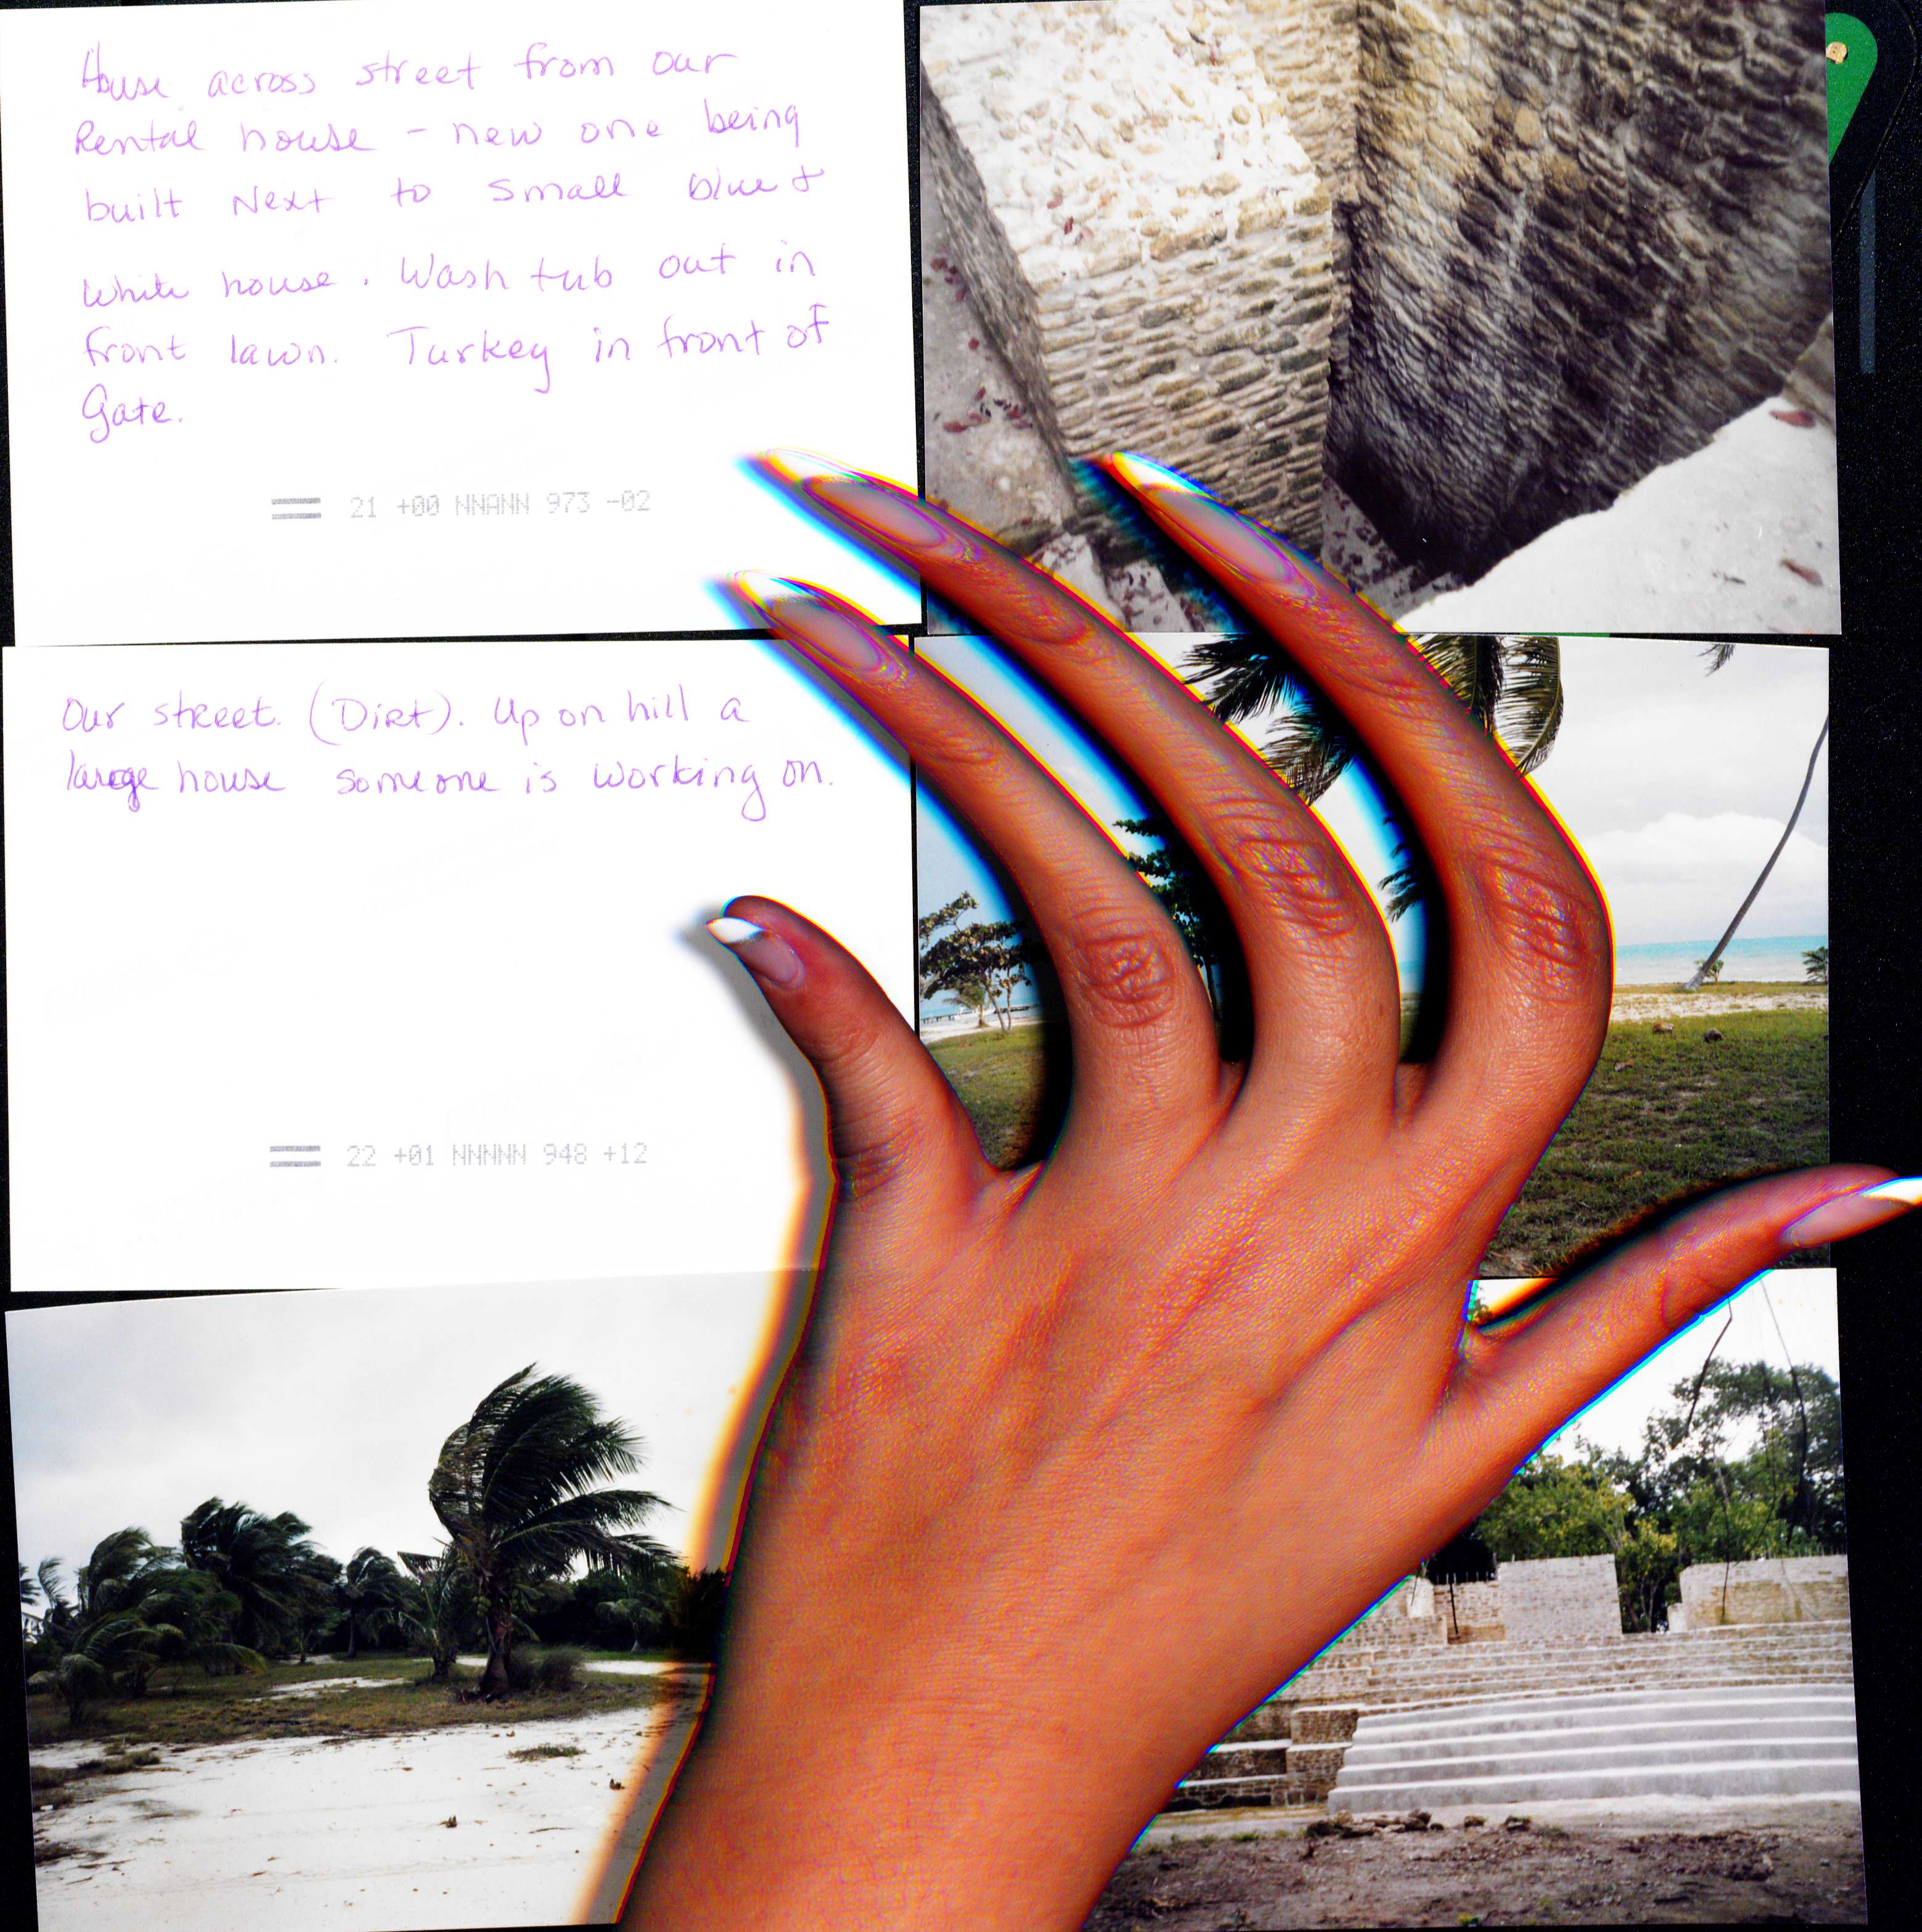 House across street from our
Rental house - new one being
built Next to small blue &
White house. Wash tub out in
front lawn. Turkey in front of
Gate.
21 +00 NNANN 973 -02
Our street. (Dirt). Up on hill a
large house someone is working on.
22 +01 NNNNN 948 +12